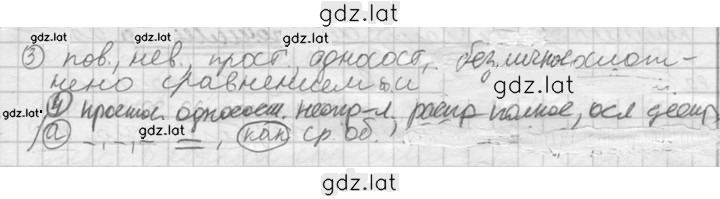 gdz.lat
gdz.lat
③ пов., нев., прост., односост., безличное ослож-
gdz.lat
нено сравнением и
gdz.lat
gdz.lat. ④ простое. односост. неопр-л. распр полное, осл деепр
gdz.lat
а _._._ =, (как ср. об.)
gdz.lat